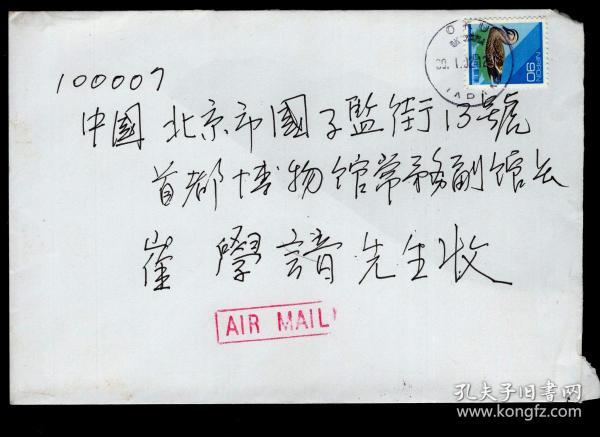 100007
中國 北京市國子監街13号號
首都博物馆常務副馆长
崔學諳先生收
AIR MAIL
NIPPON
90
孔夫子旧书网
www.kongfz.com